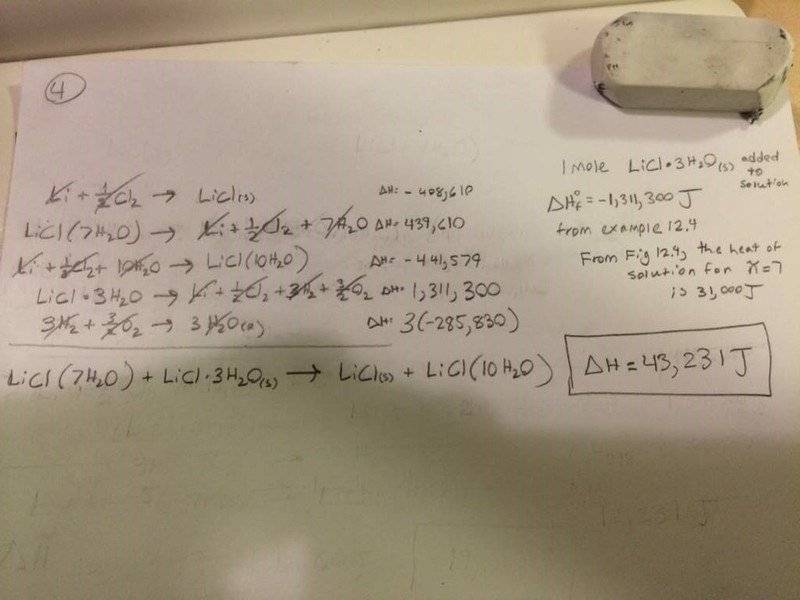 4
Li + 1/2 Cl2 → LiCl(s) ΔH = -408,610
LiCl(7H2O) → Li + 1/2 Cl2 + 7H2O ΔH = 439,610
Li + 1/2 Cl2 + 10H2O → LiCl(10H2O) ΔH = -441,579
LiCl·3H2O → Li + 1/2 Cl2 + 3H2 + 3/2 O2 ΔH = 1,311,300
3H2 + 3/2 O2 → 3H2O(l) ΔH = 3(-285,830)
LiCl(7H2O) + LiCl·3H2O(s) → LiCl(s) + LiCl(10H2O)
ΔH = 43,231 J
1 mole LiCl·3H2O(s) added to solution
ΔH°f = -1,311,300 J
from example 12.4
From Fig 12.4, the heat of
solution for ñ = 7
is 31,000 J